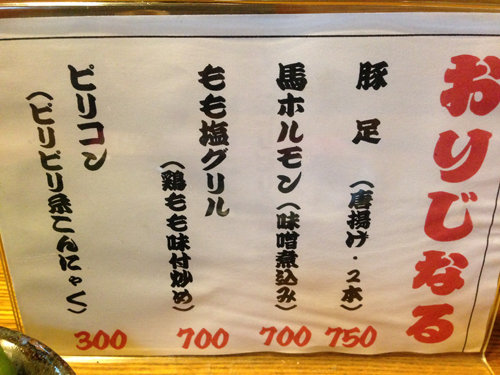 おりじなる
豚足(唐揚げ・2本)
750
馬ホルモン(味噌煮込み)
700
もも塩グリル
(鶏もも味付炒め)
700
ピリコン
(ピリピリ糸こんにゃく)
300